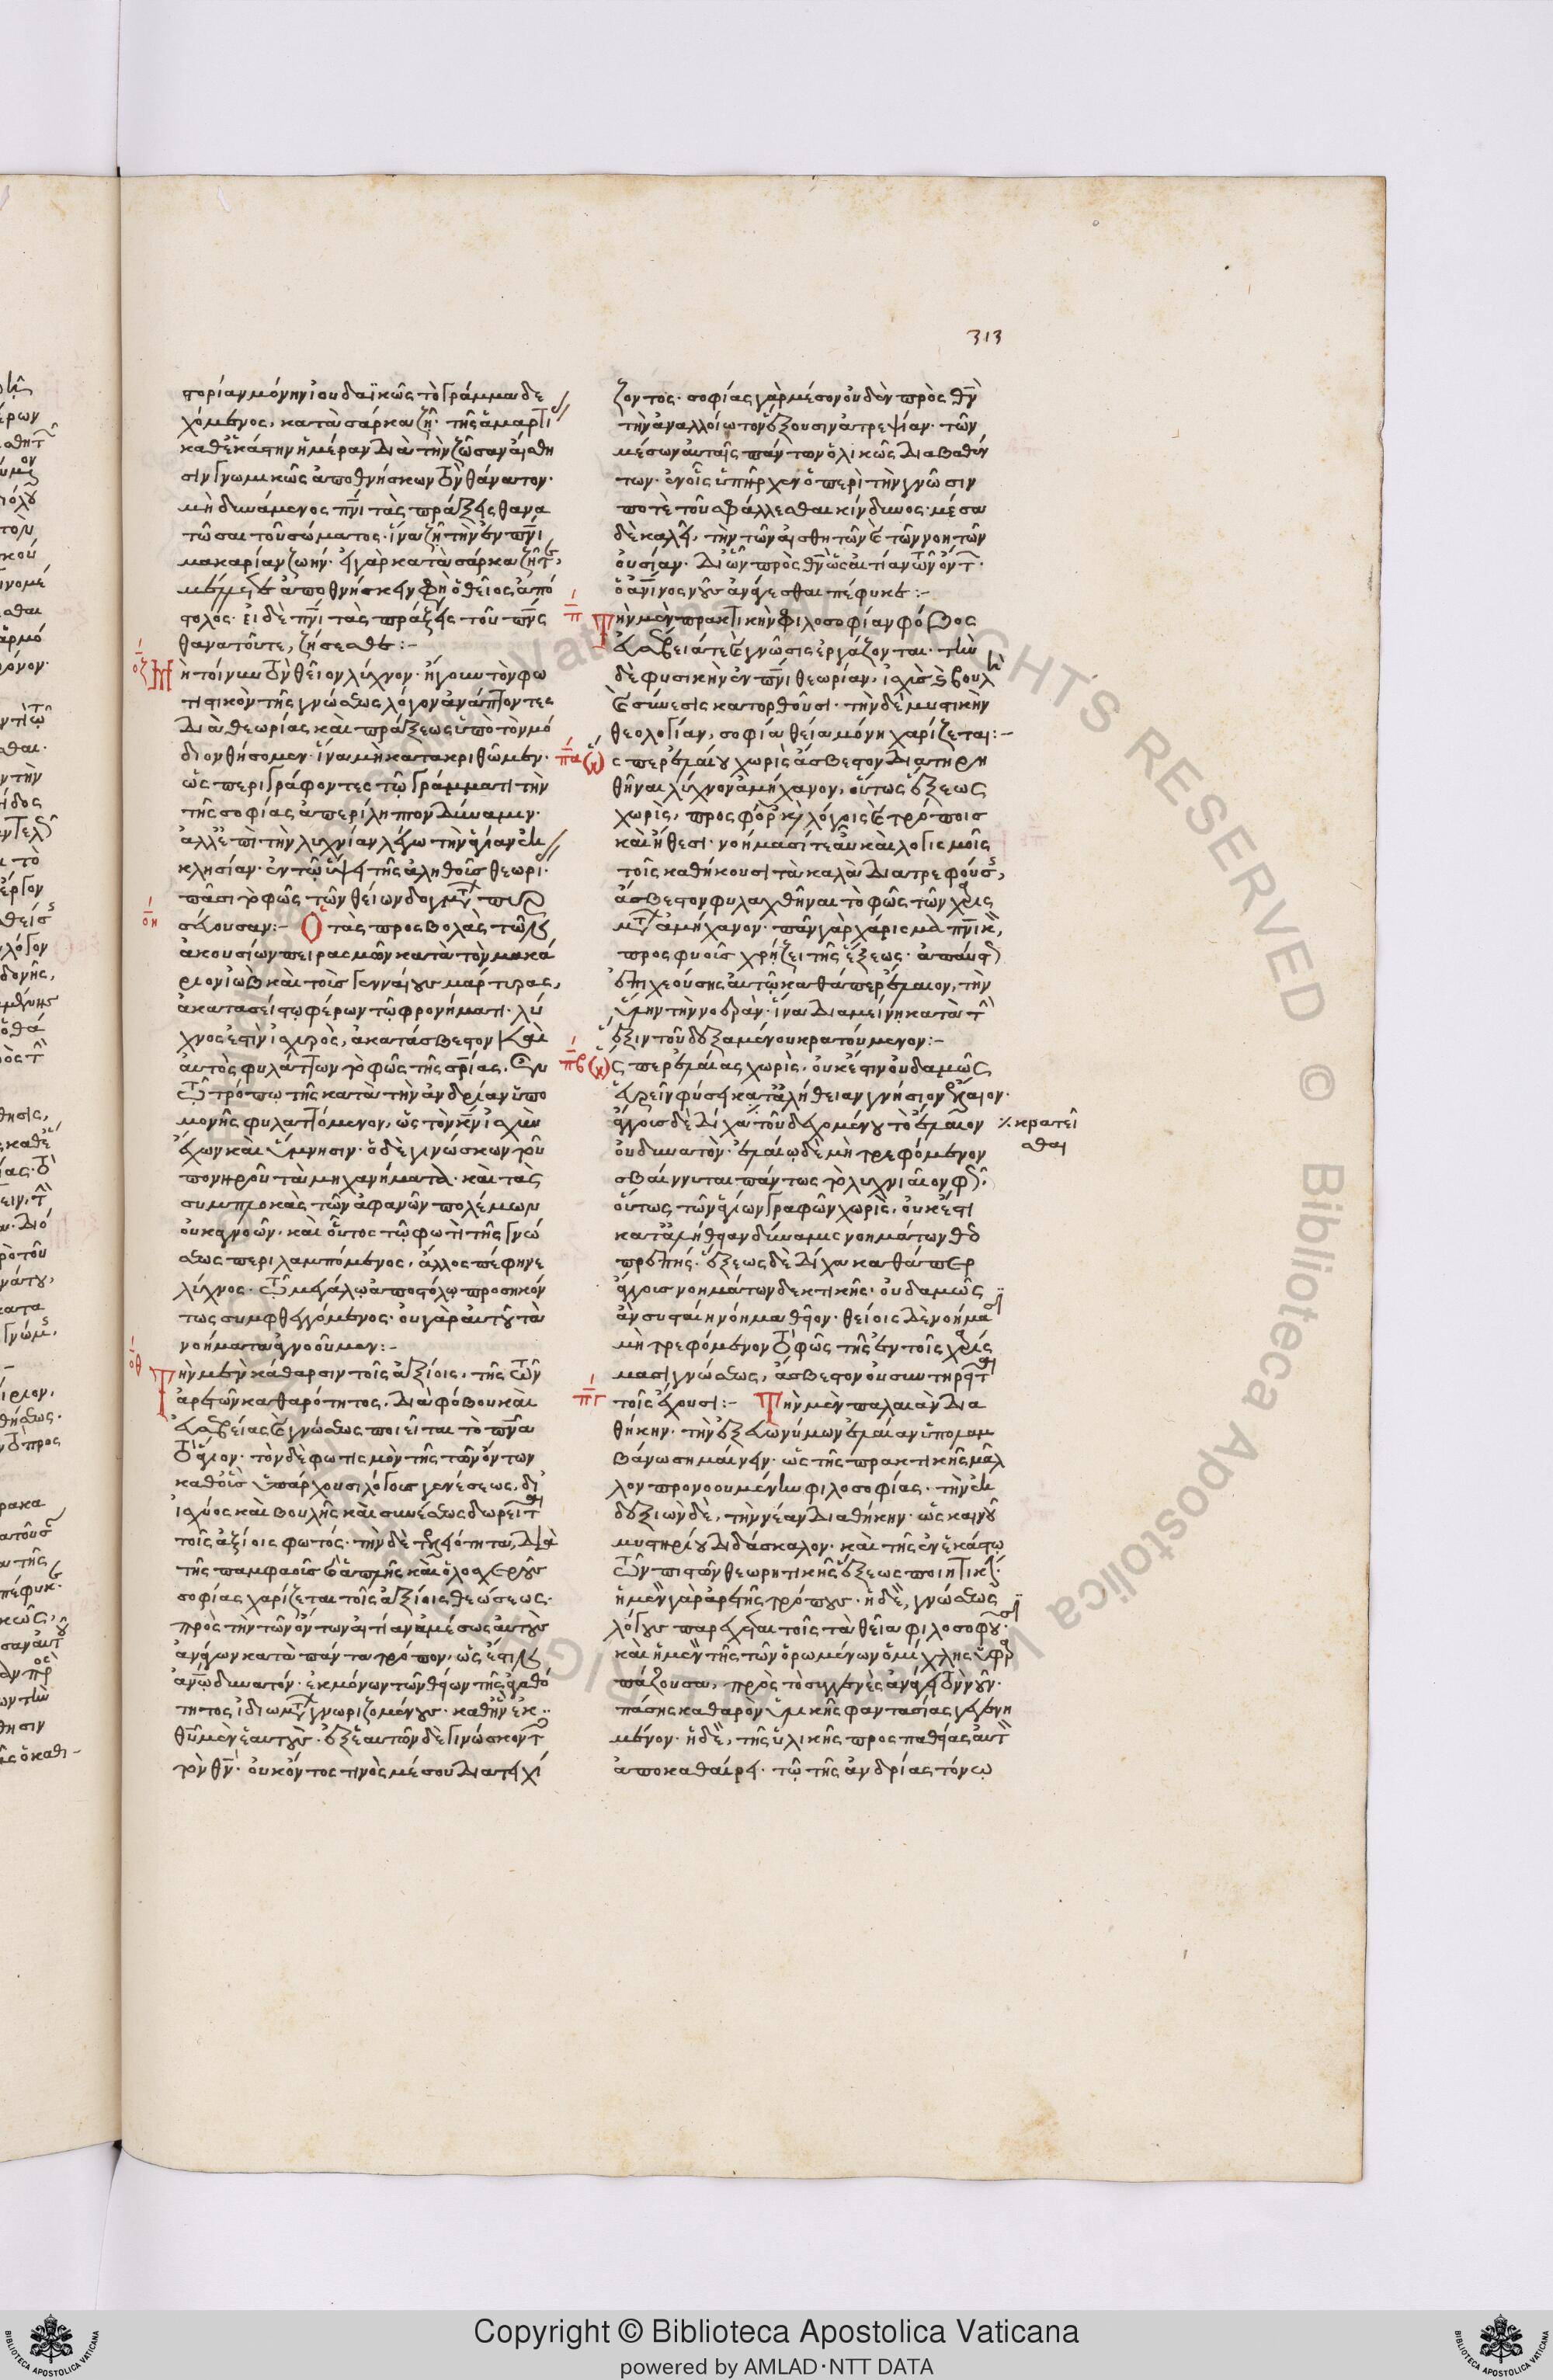 313
στορίαν μόνην ἰουδαϊκῶς τὸ γράμμα δε
χόμενος, κατὰ σάρκα ζῇ· τῆς ἁμαρτί
καθ' ἑκάστην ἡμέραν διὰ τὴν ζῶσαν αἴσθη
σιν γνωμικῶς ἀποθνήσκων τὸν θάνατον·
μὴ δυνάμενος πνι τὰς πράξεις θανα
τῶσαι τοῦ σώματος· ἵνα ζῇ τὴν ἐν πνι
μακαρίαν ζωήν· εἰ γὰρ κατὰ σάρκα ζῆτε,
μέλλετε ἀποθνήσκειν φη ὁ θεῖος ἀπό
στολος· εἰ δὲ πνι τὰς πράξεις τοῦ πνς
θανατοῦτε, ζήσεσθε:-
οζ Μὴ τοίνυν τὸν θεῖον λύχνον· ἤγουν τὸν φω
τιστικὸν τῆς γνώσεως λόγον ἀνάπτοντες
διὰ θεωρίας καὶ πράξεως ὑπὸ τὸν μό
διον θήσομεν· ἵνα μὴ κατακριθῶμεν·
ὡς περιγράφοντες τῷ γράμματι τὴν
τῆς σοφίας ἀπερίληπτον δύναμιν·
ἀλλ' ἐπὶ τὴν λυχνίαν λέγω τὴν ἁγίαν ἐκ
κλησίαν· ἐν τῷ ὕψει τῆς ἀληθοῦς θεωρι·
πᾶσι τὸ φῶς τῶν θείων δογμτ πυρ
σεύουσαν:- οη Ὁ τὰς προσβολὰς τῶν
ἀκουσίων πειρασμῶν κατὰ τὸν μακά
ριον ἰὼβ καὶ τοὺς γενναίους μάρτυρας,
ἀκατασείστῳ φέρων τῷ φρονήματι· λύ
χνος ἐστὶν ἰσχυρὸς, ἀκατάσβεστον καὶ
αὐτὸς φυλάττων τὸ φῶς τῆς σρίας. ἐν
τῷ τρόπῳ τῆς κατὰ τὴν ἀνδρίαν ὑπο
μονῆς φυλαττόμενον, ὡς τὸν κν ἰσχὺν
ἔχων καὶ ὕμνησιν· ὁ δὲ γινώσκων τοῦ
πονηροῦ τὰ μηχανήματα· καὶ τὰς
συμπλοκὰς τῶν ἀφανῶν πολέμων
οὐκ ἀγνοῶν· καὶ οὗτος τῷ φωτὶ τῆς γνώ
σεως περιλαμπόμενος, ἄλλος πέφηνε
λύχνος· τῷ μεγάλῳ ἀποστόλῳ προσηκόν
τως συμφθεγγόμενος· οὐ γὰρ αὐτοῦ τὰ
νοήματα ἀγνοοῦμεν:-
οθ Τὴν μὲν κάθαρσιν τοῖς ἀξίοις, τῆς τῶν
ἀρετῶν καθαρότητος, διὰ φόβου καὶ
εὐσεβείας καὶ γνώσεως ποιεῖται τὸ πνα
τὸ ἅγιον· τὸν δὲ φωτισμὸν τῆς τῶν ὄντων
καθ' οὓς ὑπάρχουσι λόγους γενέσεως, δι'
ἰσχύος καὶ βουλῆς καὶ συνέσεως δωρεῖται
τοῖς ἀξίοις φωτός· τὴν δὲ τελειότητα, διὰ
τῆς παμφαοῦς καὶ ἁπλῆς καὶ ὁλοσχεροῦς
σοφίας χαρίζεται τοῖς ἀξίοις θεώσεως·
πρὸς τὴν τῶν ὄντων αἰτίαν ἀμέσως αὐτοὺς
ἀνάγων κατὰ πάντα τρόπον, ὡς ἐστιν
ἀνῳ δυνατόν· ἐκ μόνων τῶν θείων τῆς ἀγαθό
τητος ἰδιωμτ γνωριζομένους· καθ' ἣν ἐκ
θυ μὲν ἑαυτοὺς· ἐξ ἑαυτῶν δὲ γινώσκοντ
τὸν θν· οὐκ ὄντος τινὸς μέσου διατειχί
ζοντος· σοφίας γὰρ μέσον οὐδὲν πρὸς θν
τὴν ἀναλλοίωτον ἕξουσιν ἀτρεψίαν· τῶν
μέσων αὐταῖς πάντων ὁλικῶς διαβαθέν
των· ἐν οἷς ὑπῆρχεν ὁ περὶ τὴν γνῶσιν
ποτὲ τοῦ σφάλλεσθαι κίνδυνος· μέσα
δὲ καλεῖ, τὴν τῶν αἰσθητῶν καὶ τῶν νοητῶν
οὐσίαν· δι' ὧν πρὸς θν ὡς αἰτίαν τῶν ὄντ·
ὁ ανινος νους ἀνάγεσθαι πέφυκε:-
π Τὴν μὲν πρακτικὴν φιλοσοφίαν φόβος
εὐσέβειά τε καὶ γνῶσις ἐργάζονται· τὴν
δὲ φυσικὴν ἐν πνι θεωρίαν, ἰσχὺς καὶ βουλὴ
καὶ σύνεσις κατορθοῦσι· τὴν δὲ μυστικὴν
θεολογίαν, σοφία θεία μόνη χαρίζεται:-
πα Ὥσπερ ἐλαίου χωρὶς ἄσβεστον διατηρη
θῆναι λύχνον ἀμήχανον, οὕτως ἕξεως
χωρὶς, προσφόροις λόγοις καὶ τρόποις
καὶ ἤθεσι· νοήμασί τε αὖ καὶ λογισμοῖς
τοῖς καθήκουσι τὰ καλὰ διατρεφούσ,
ἄσβεστον φυλαχθῆναι τὸ φῶς τῶν χαρισ
μτ ἀμήχανον· πᾶν γὰρ χάρισμα πνικ,
προσφυοῦς χρῄζει τῆς ἕξεως· ἀπαύστ
ἐπιχεούσης αὐτῷ καθάπερ ἔλαιον, τὴν
ὕλην τὴν νοεράν· ἵνα διαμείνῃ κατὰ τὴν
ἕξιν τοῦ δεξαμένου κρατούμενον:-
πβ Ὥσπερ ἐλαίας χωρὶς, οὐκ ἔστιν οὐδαμῶς
εὑρεῖν φύσει κατ' ἀλήθειαν γνήσιον ἔλαιον·
ἄγγους δὲ δίχα ⁒ τοῦ δεχομένου τὸ ἔλαιον ⁒ κρατεῖ
σθαι
οὐ δυνατόν· ἐλαίῳ δὲ μὴ τρεφόμενον
σβέννυται πάντως τὸ λυχνιαῖον φῶς·
οὕτως τῶν ἁγίων γραφῶν χωρὶς, οὐκ ἔστι
κατ' ἀλήθειαν δύναμις νοημάτων θεο
πρεπής· ἕξεως δὲ δίχα καθάπερ
ἄγγους νοημάτων δεκτικῆς· οὐδαμῶς
ἂν συσταίη νόημα θεῖον· θείοις δὲ νοήμασι
μὴ τρεφόμενον τὸ φῶς τῆς ἐν τοῖς χαρίσ
μασι γνώσεως, ἄσβεστον οὐ συντηρεῖται
τοῖς ἔχουσι:- πγ Τὴν μὲν παλαιὰν δια
θήκην· τὴν ἐξ εὐωνύμων ἐλαίαν ὑπολαμ
βάνω σημαίνειν· ὡς τῆς πρακτικῆς μᾶλ
λον προνοουμένην φιλοσοφίας· τὴν ἐκ
δεξιῶν δὲ, τὴν νέαν διαθήκην· ὡς καινοῦ
μυστηρίου διδάσκαλον· καὶ τῆς ἐν ἑκάστῳ
τῶν πιστῶν θεωρητικῆς ἕξεως ποιητικήν·
ἡ μὲν γὰρ ἀρετῆς τρόπους· ἡ δὲ, γνώσεως
λόγους παρέχεται τοῖς τὰ θεῖα φιλοσοφοῦσι·
καὶ ἡ μὲν τῆς τῶν ὁρωμένων ὁμίχλης ὑφαρ
πάζουσα, πρὸς τὸ συγγενὲς ἀνάγει τὸν νοῦν·
πάσης καθαρὸν ὑλικῆς φαντασίας γεγενη
μένον· ἡ δὲ, τῆς ὑλικῆς προσπαθείας αὐτὸν
ἀποκαθαίρει· τῷ τῆς ἀνδρίας τόνῳ
Copyright © Biblioteca Apostolica Vaticana
powered by AMLAD·NTT DATA